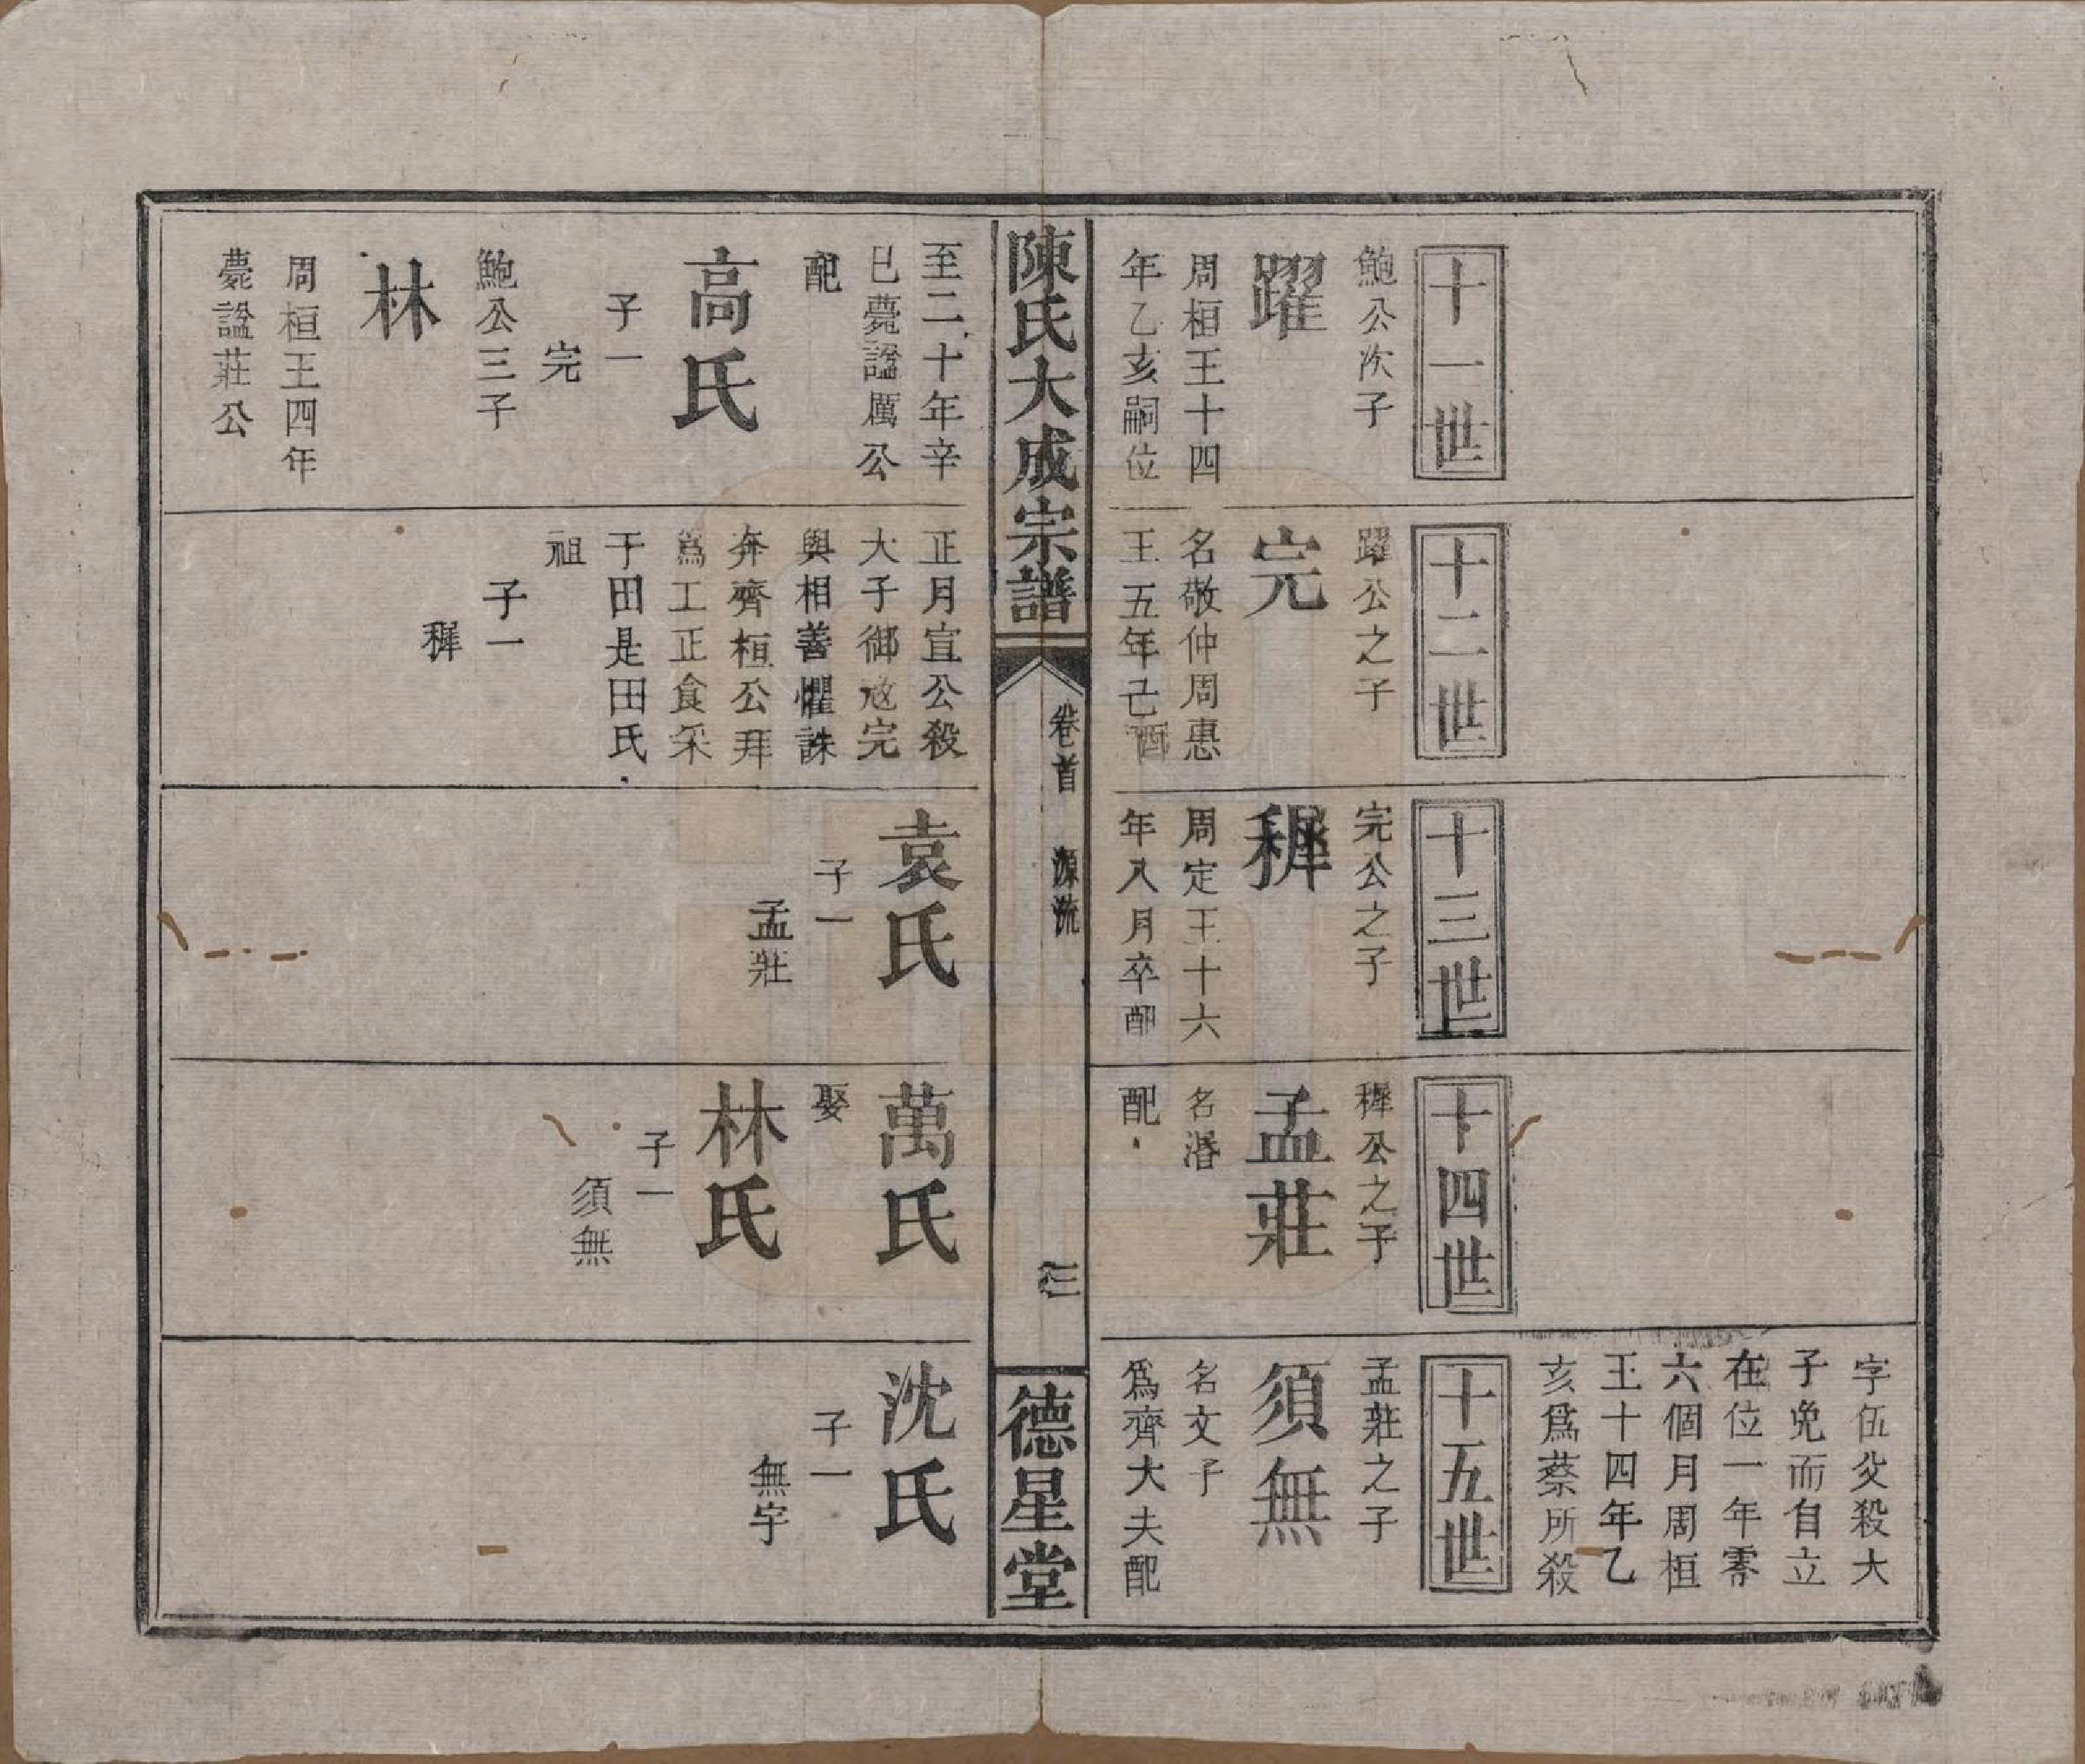 字伍父殺大
子免而自立
在位一年零
六個月周桓
王十四年乙
亥爲蔡所殺
十一世
鮑公次子
躍
周桓王十四
年乙亥嗣位
至二十年辛
巳薨諡厲公
配
高氏
子一
完
鮑公三子
林
周桓王四年
薨諡莊公
十二世
躍公之子
完
名敬仲周惠
王五年己酉
正月宣公殺
大子御寇完
與相善懼誅
奔齊桓公拜
爲工正食采
于田是田氏
祖
子一
穉
十三世
完公之子
穉
周定王十六
年八月卒配
袁氏
子一
孟莊
十四世
穉公之子
孟莊
名湣
配
萬氏
娶
林氏
子一
須無
十五世
孟莊之子
須無
名文子
爲齊大夫配
沈氏
子一
無宇
陳氏大成宗譜
卷首 源流
德星堂